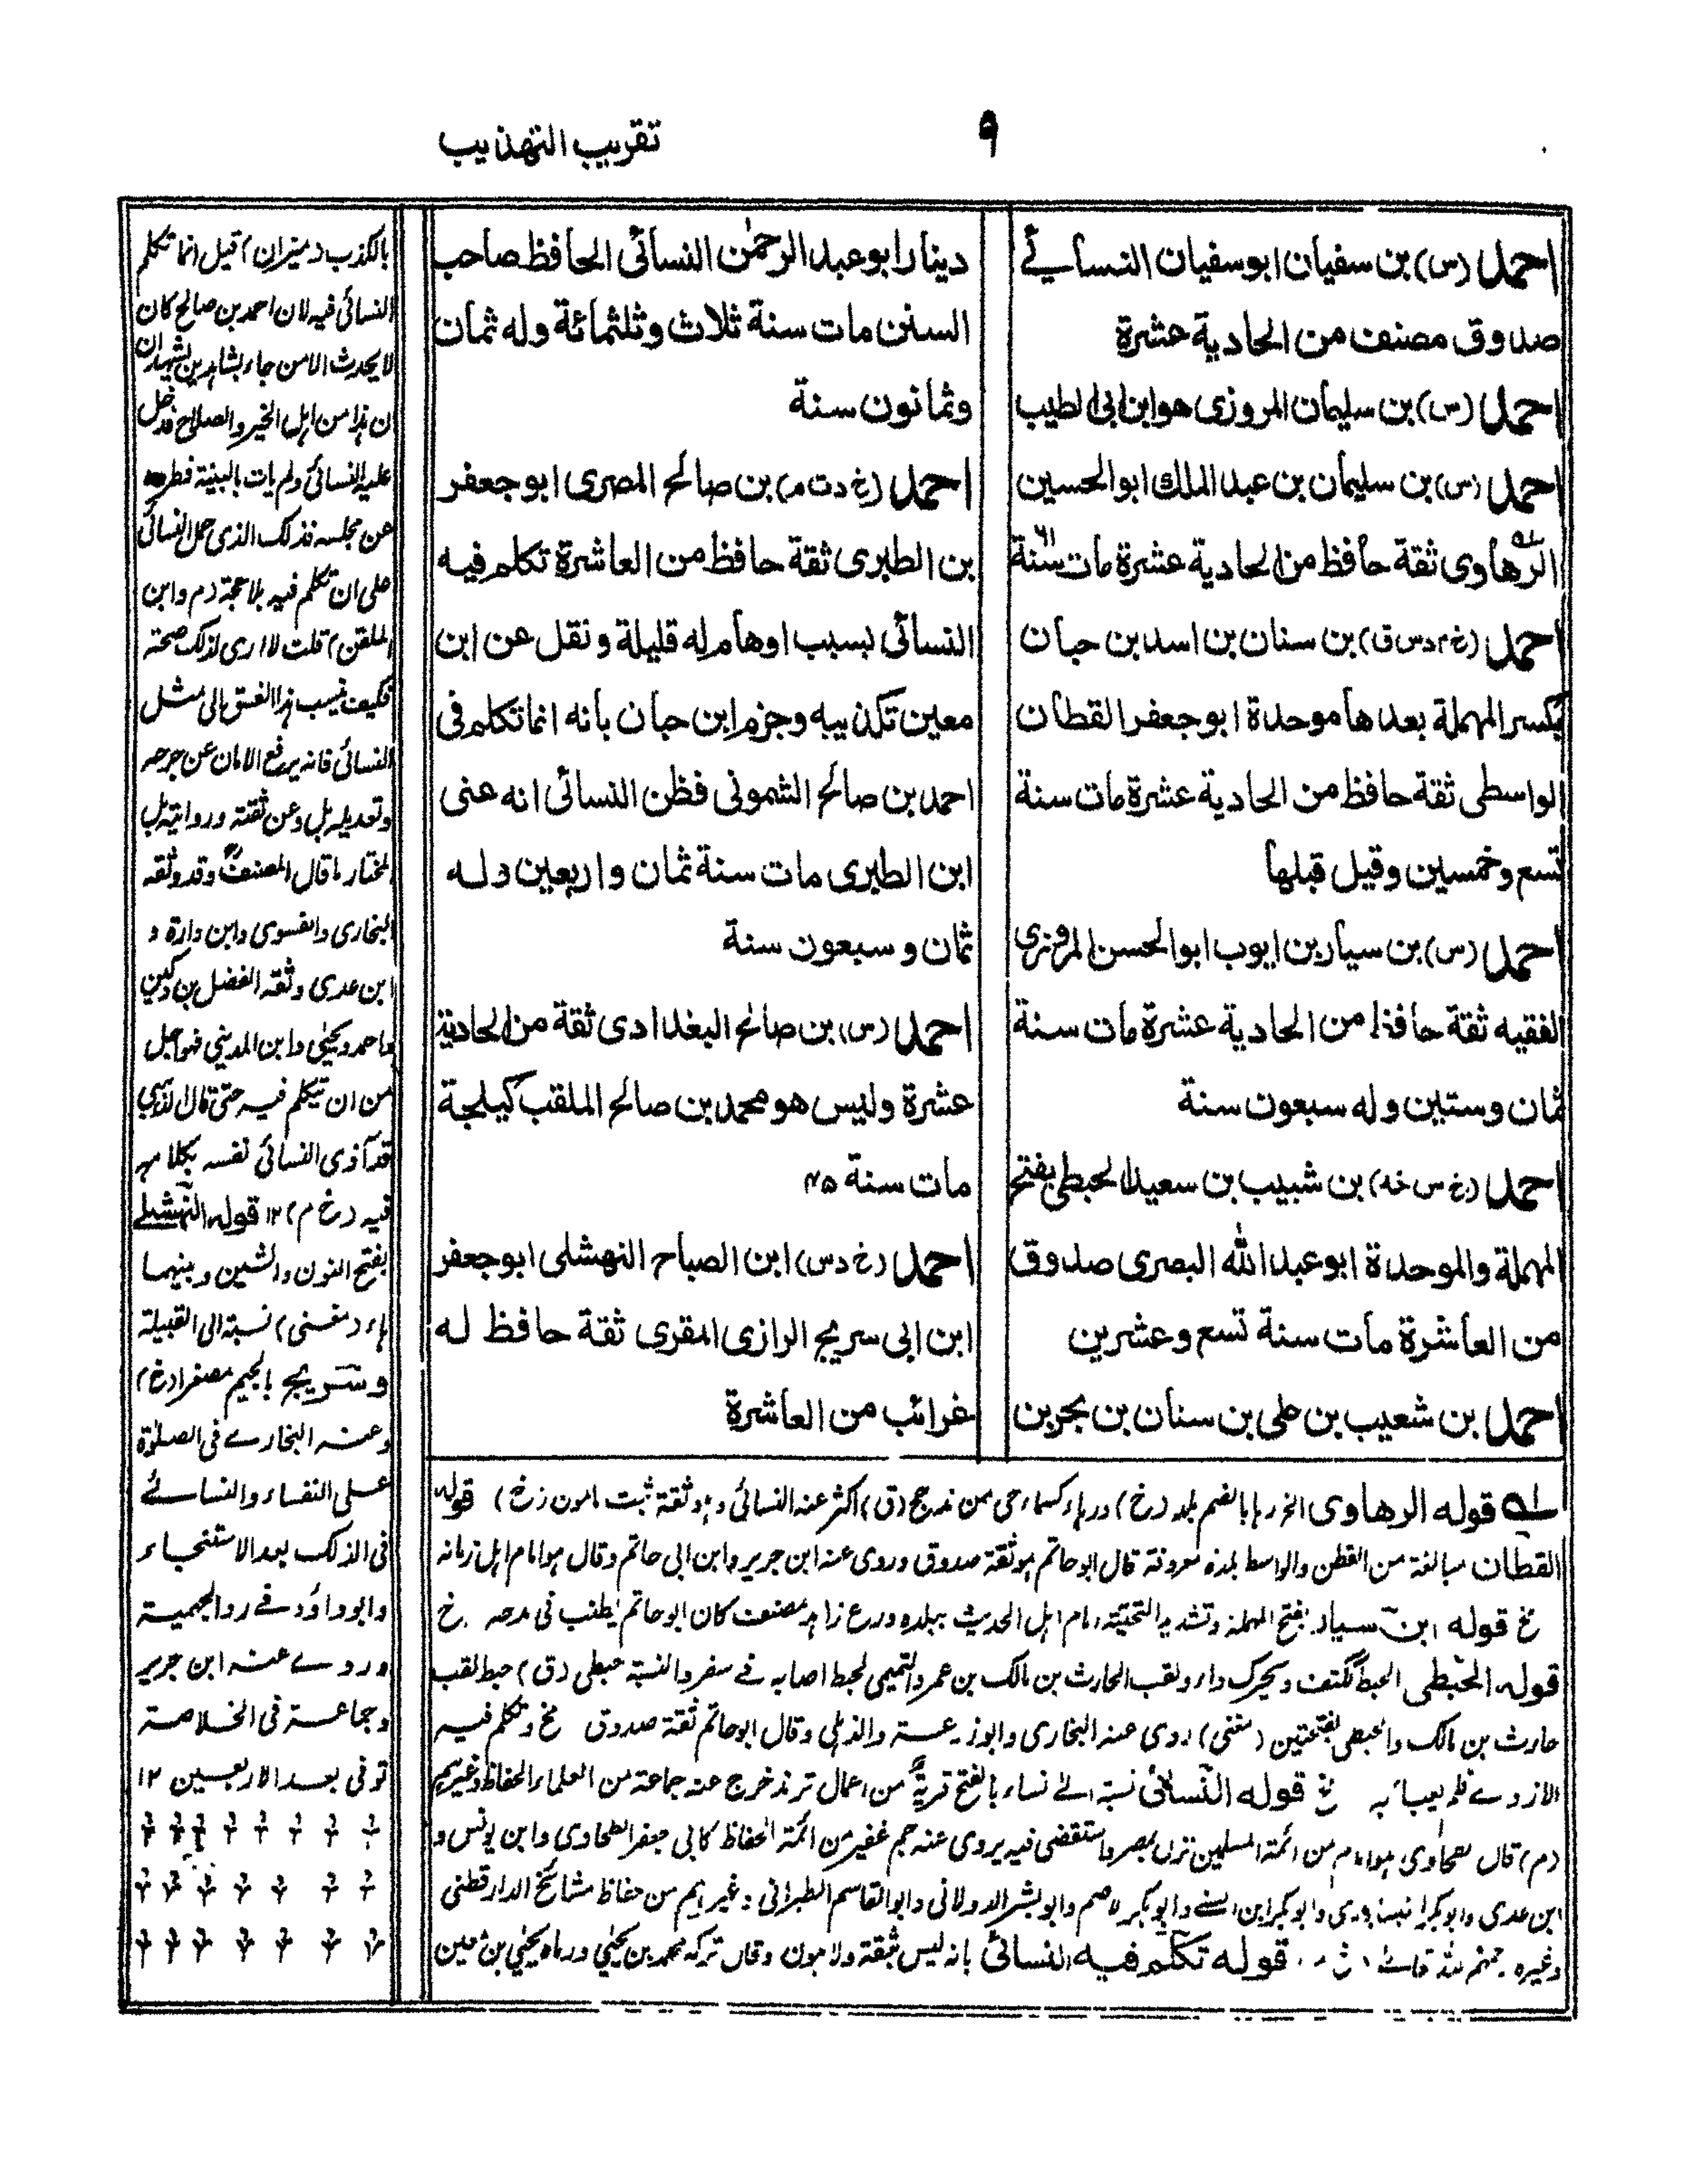 تقريب التهذيب
٩
احمد (س) بن سفيان ابو سفيان النسائے
صدوق مصنف من الحادية عشرة
احمد (س) بن سليمان المروزى هو ابن ابى الطيب
احمد (س) بن سليمان بن عبد الملك ابو الحسين
الرهاوى ثقة حافظ من الحادية عشرة مات سنة ٦١
احمد (خ م د س ق) بن سنان بن اسد بن حبان
بكسر المهملة بعدها موحدة ابو جعفر القطان
الواسطى ثقة حافظ من الحادية عشرة مات سنة
تسع وخمسين وقيل قبلها
احمد (س) بن سيار بن ايوب ابو الحسن المروزى
الفقيه ثقة حافظ من الحادية عشرة مات سنة
ثمان وستين وله سبعون سنة
احمد (خ س خد) بن شبيب بن سعيد الحبطى بفتح
المهملة والموحدة ابو عبد الله البصرى صدوق
من العاشرة مات سنة تسع وعشرين
احمد بن شعيب بن على بن سنان بن بحر بن
دينار ابو عبد الرحمٰن النسائى الحافظ صاحب
السنن مات سنة ثلاث وثلثمائة وله ثمان
وثمانون سنة
احمد (خ د ت م) بن صالح المصرى ابو جعفر
بن الطبرى ثقة حافظ من العاشرة تكلم فيه
النسائى بسبب اوهام له قليلة ونقل عن ابن
معين تكذيبه وجزم ابن حبان بأنه انما تكلم فى
احمد بن صالح الشمونى فظن النسائى انه عنى
ابن الطبرى مات سنة ثمان واربعين وله
ثمان وسبعون سنة
احمد (س) بن صالح البغدادى ثقة من الحادية
عشرة وليس هو محمد بن صالح الملقب كيلجة
مات سنة ٤٥
احمد (خ د س) ابن الصباح النهشلى ابو جعفر
ابن ابى سريج الرازى المقرى ثقة حافظ له
غرائب من العاشرة
قوله الرهاوى الخ رہا بالضم بلد (خ) ورہاء كسماء حى من مذحج (ق) اكثر عنه النسائى وہو ثقة ثبت مامون (خ) قوله
القطان مبالغة من القطن والواسط بلدة معروفة قال ابو حاتم ہو ثقة صدوق وروى عنه ابن جرير وابن ابى حاتم وقال ہو امام اہل زمانہ
خ قوله ابن سيار بفتح المهملة وتشديد التحتية امام اہل الحديث ببلده ورع زاہد مصنف كان ابو حاتم يطنب فى مدحہ خ
قوله الحبطى الحبط ككتف ويحرك داء ولقب الحارث بن مالك بن عمرو التميمى لحبط اصابه فے سفر والنسبة حبطى (ق) حبط لقب
حارث بن مالك والحبطى بفتحتين (مغنى) روى عنه البخارى وابو زرعة والذہلى وقال ابو حاتم ثقة صدوق خ وتكلم فيه
الازدے فلم يعبأ به خ قوله النسائى نسبة الے نساء بالفتح قرية من اعمال ترمذ خرج عنه جماعة من العلماء الحفاظ وغيرہم
(م) قال الطحاوى ہو امام من ائمة المسلمين نزل بمصر واستقضى فيه يروى عنه جم غفير من ائمة الحفاظ كابى جعفر الطحاوى وابن يونس و
ابن عدى وابو بكر النيسابورى وابو بكر ابن السنے وابو بكر الاصم وابو بشر الدولابى وابو القاسم الطبرانى وغيرہم من حفاظ مشائخ الدارقطنى
وغيره رحمہم اللہ تعالےٰ قوله تكلم فيه النسائى بانه ليس بثقة ولا مامون وقال تركہ محمد بن يحيٰى ورماه يحيٰى بن معين
بالكذب (ميزان) قيل انما تكلم
النسائى فيه لان احمد بن صالح كان
لا يحدث الا من جاء بشاہدين يشهدان
ان ہذا من اہل الخير والصلاح فدخل
عليه النسائى ولم يات بالبينة فطرده
عن مجلسه فذلك الذى حمل النسائى
على ان تكلم فيه بلا حجة (م وابن
الملقن) قلت لا ارى لذلك صحة
فكيف ينسب ہذا الفسق الى مثل
النسائى فانه يرفع الامان عن جرحه
وتعديله بل وعن ثقته وروايته بل
المختار ما قال المصنف وقد وثقه
البخارى والفسوى وابن وارة و
ابن عدى وثقه الفضل بن دكين
واحمد ويحيٰى وابن المدينى فهو اجل
من ان يتكلم فيه حتى قال الذہبى
قد آذى النسائى نفسه بكلامه
فيه (خ م) ١٢ قوله النهشلے
بفتح النون والشين وبينهما
ہاء (مغنى) نسبة الى القبيلة
وسريج بالجيم مصغرا (خ)
وعنه البخارے فى الصلوٰة
على النفساء والنسائے
فى الدلك بعد الاستنجاء
وابو داؤد فے رد الجهمية
وروے عنه ابن جرير
وجماعة فى الخلاصة
توفى بعد الاربعين ١٢